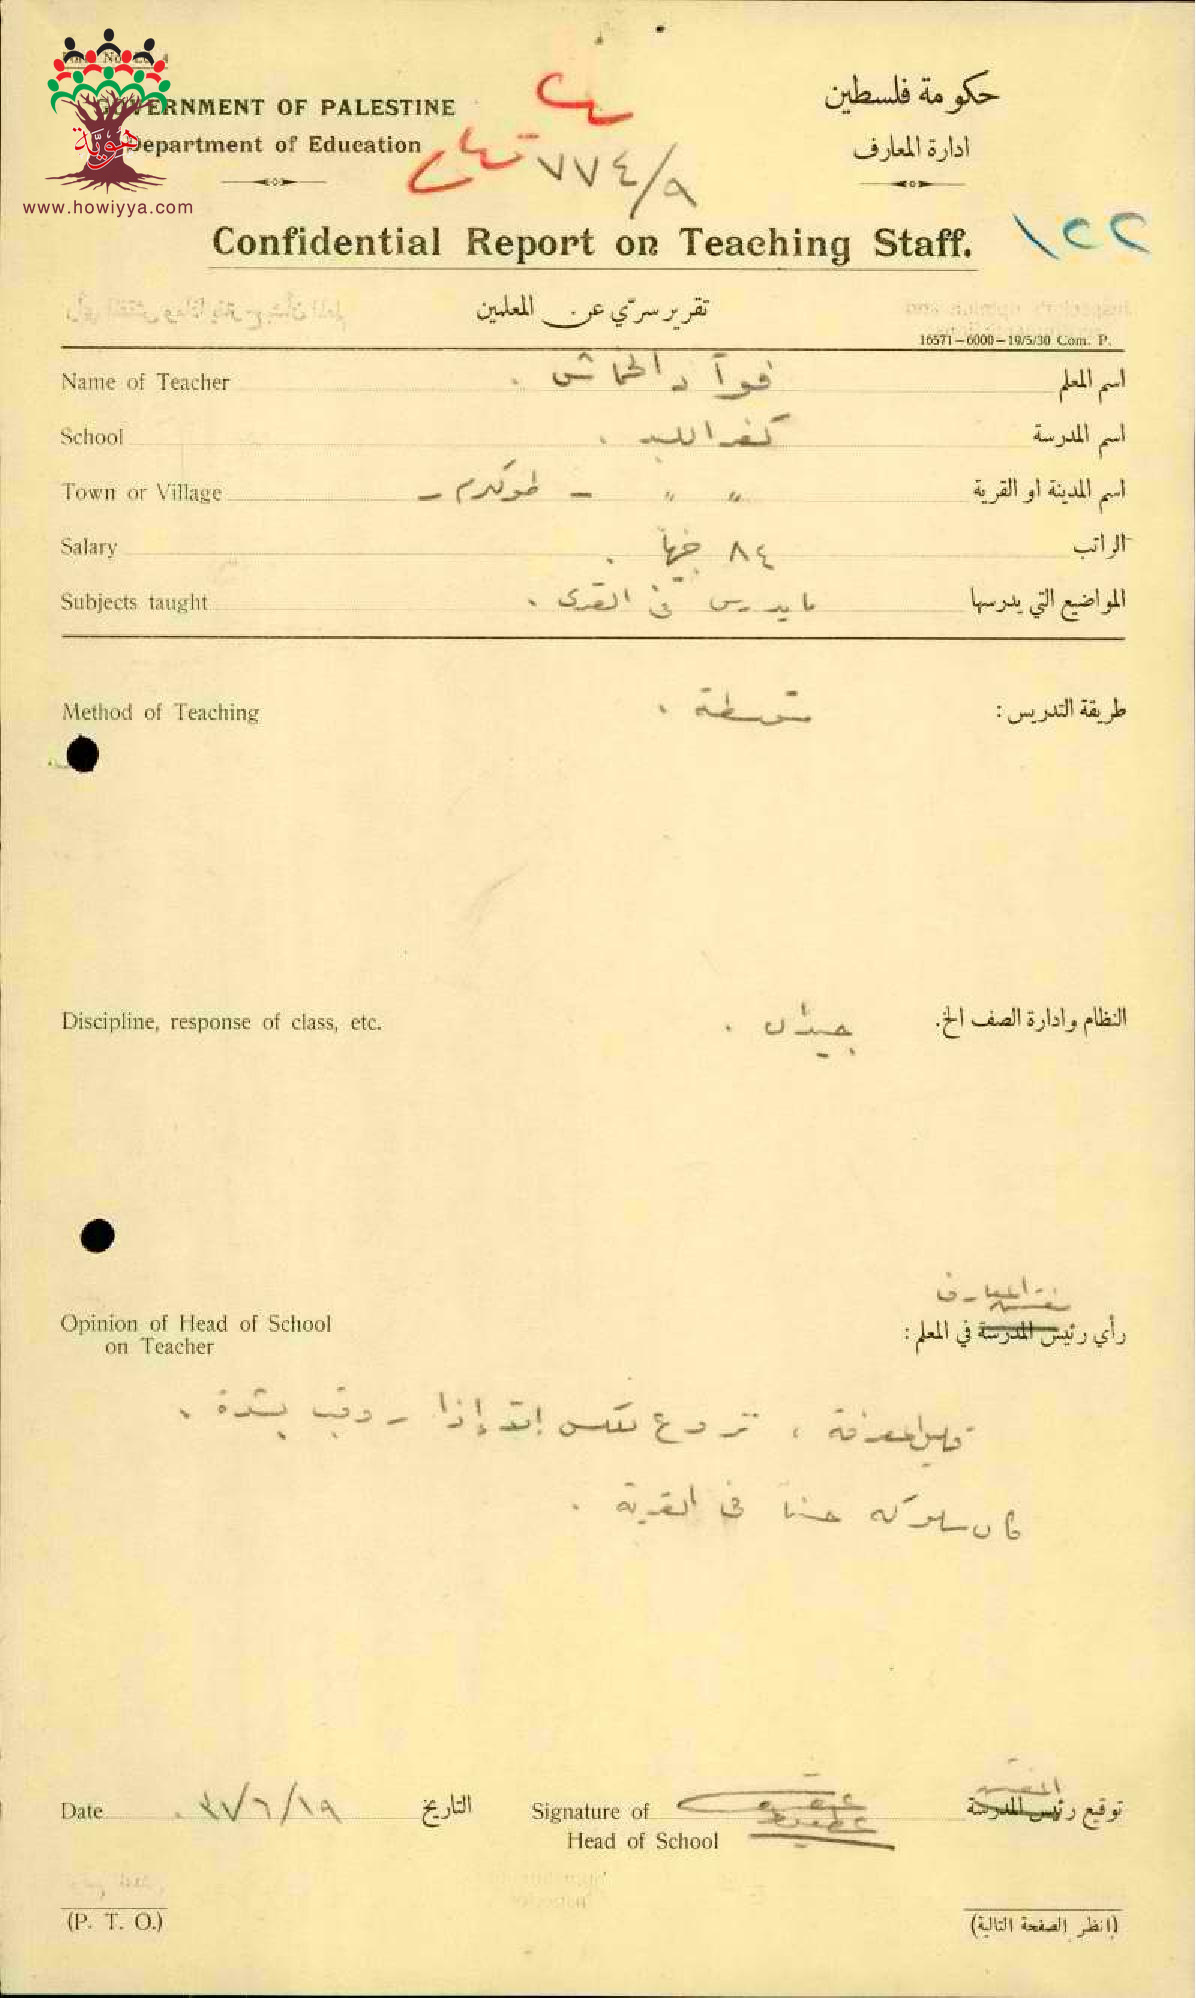 GOVERNMENT OF PALESTINE
Department of Education
حكومة فلسطين
ادارة المعارف
هوية
www.howiyya.com
٧٧٤/٩
١٢٢
Confidential Report on Teaching Staff.
تقرير سرّي عن المعلمين
16571—6000—19/5/30 Com. P.
Name of Teacher فوآد الخماش . اسم المعلم
School كفر اللبد . اسم المدرسة
Town or Village " " – طولكرم – اسم المدينة او القرية
Salary ٨٤ جنيهاً . الراتب
Subjects taught ما يدرس في القرى . المواضيع التي يدرسها
Method of Teaching متوسطة . طريقة التدريس :
Discipline, response of class, etc. جيدان . النظام وادارة الصف الخ.
مفتش المعارف
Opinion of Head of School
on Teacher
رأي رئيس المدرسة في المعلم :
قليل المعرفة ، إذا روقب بشدة .
كان سلوكه حسناً في القرية .
Date ٣٧/٦/١٩ . التاريخ
Signature of
Head of School
المفتش
توقيع رئيس المدرسة
(P. T. O.)
(انظر الصفحة التالية)